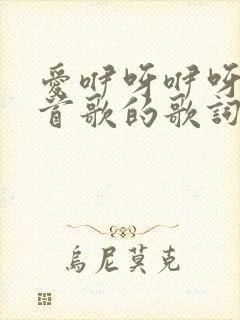 愛咿呀咿呀
首歌的歌詞
烏尼莫克